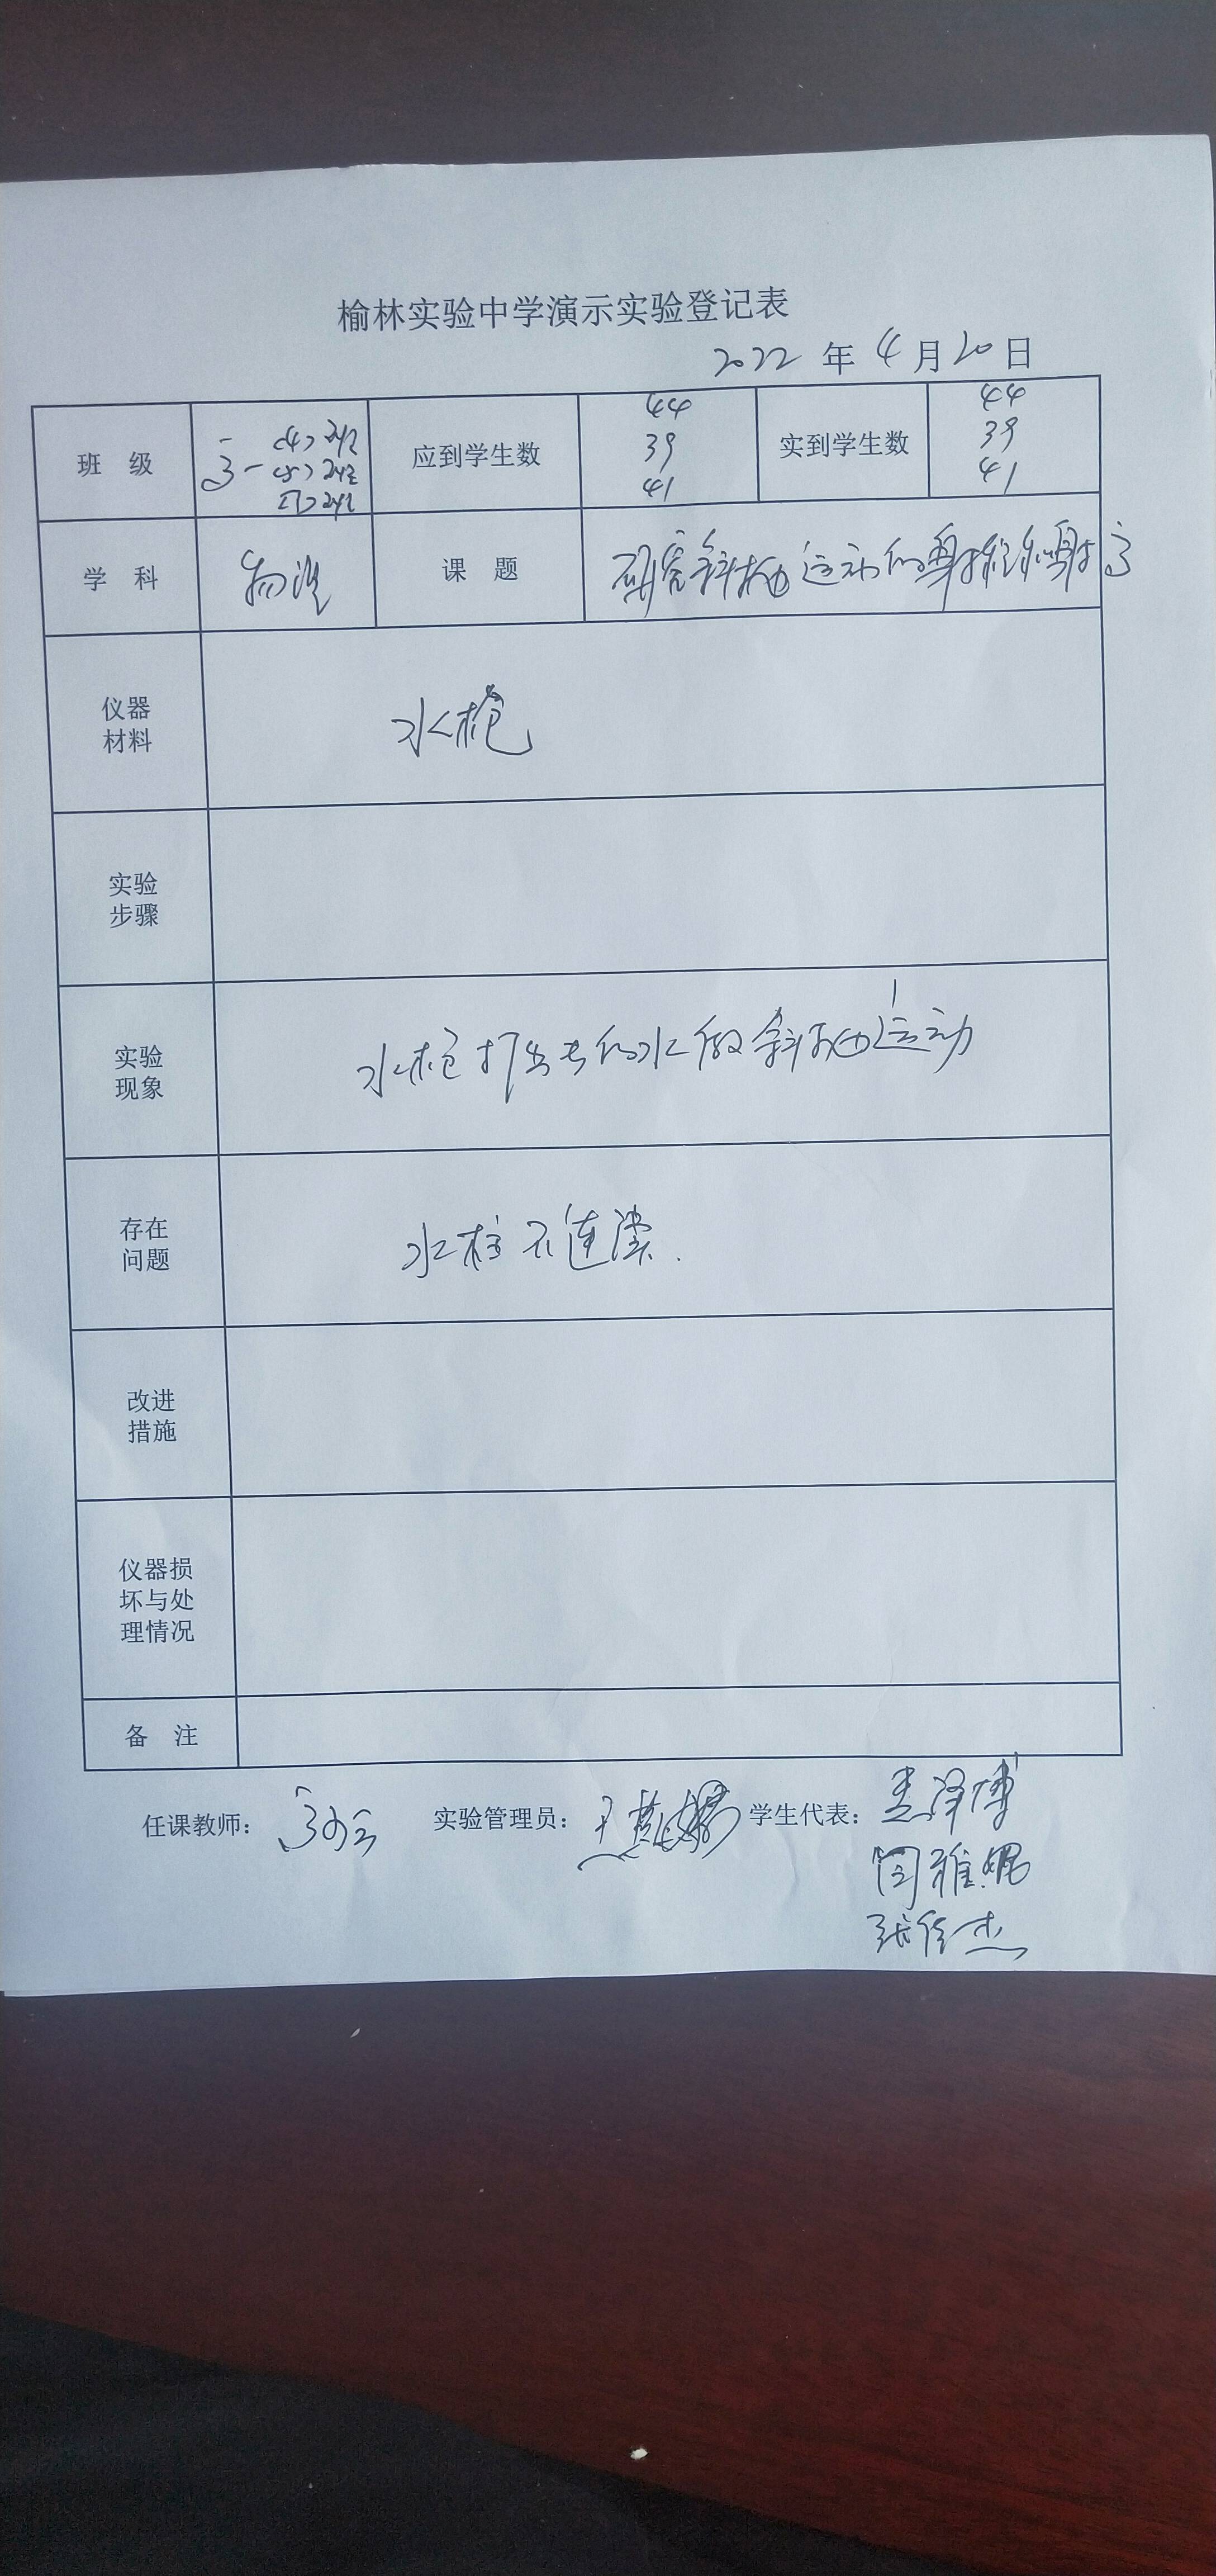 榆林实验中学演示实验登记表
2022 年 4 月 20 日
班 级 高一 (4) (5) (7) 应到学生数 44 39 41 实到学生数 44 39 41
学 科 物理 课 题 研究斜抛运动的射程和射高
仪器
材料
水枪
实验
步骤
实验
现象
水枪打出去的水做斜抛运动
存在
问题
水柱不连续.
改进
措施
仪器损
坏与处
理情况
备 注
任课教师： 实验管理员： 学生代表： 泽博
闫雅妮
张佳杰